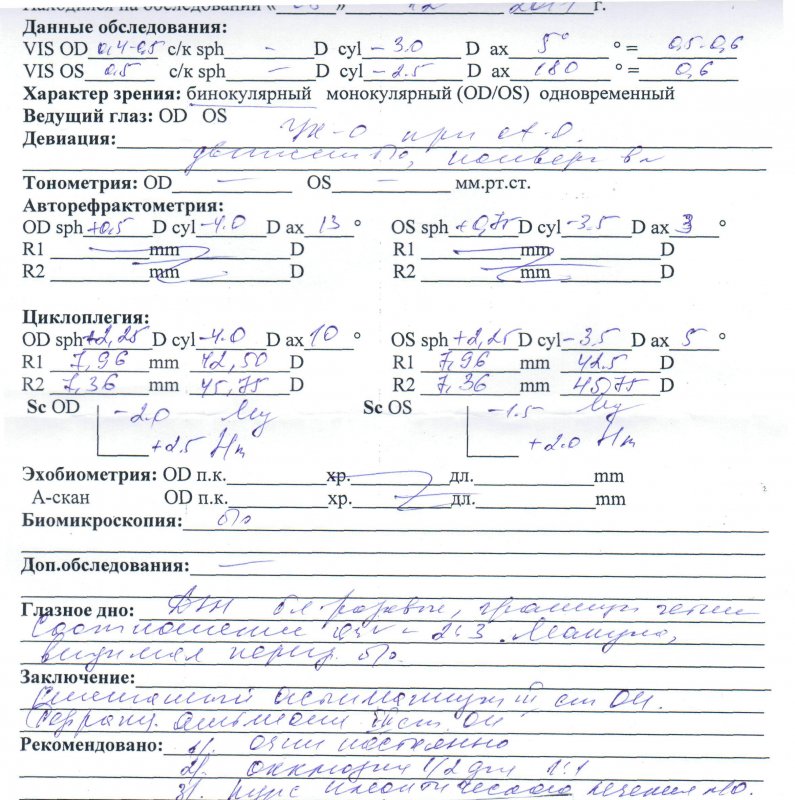 Находился на обследовании « » 12 г.
Данные обследования:
VIS OD 0,4-0,5 с/к sph - D cyl -3.0 D ax 5° ° = 0,5-0,6
VIS OS 0.5 с/к sph - D cyl -2.5 D ax 180 ° = 0,6
Характер зрения: бинокулярный монокулярный (OD/OS) одновременный
Ведущий глаз: OD OS
Девиация: Уг-0 при
движен б/о, конверг
Тонометрия: OD - OS - мм.рт.ст.
Авторефрактометрия:
OD sph +0,5 D cyl -4.0 D ax 13 ° OS sph +0,75 D cyl -3.5 D ax 3 °
R1 mm D R1 mm D
R2 mm D R2 mm D
Циклоплегия:
OD sph +2,25 D cyl -4.0 D ax 10 ° OS sph +2,25 D cyl -3.5 D ax 5 °
R1 7,96 mm 42,50 D R1 7,96 mm 42.5 D
R2 7,36 mm 45,75 D R2 7,36 mm 45,75 D
Sc OD -2.0 My Sc OS -1.5 My
+2.5 Hm +2.0 Hm
Эхобиометрия: OD п.к. хр. дл. mm
А-скан OD п.к. хр. дл. mm
Биомикроскопия: б/о
Доп.обследования: -
Глазное дно: ДЗН бл-розовые, границы четкие
Соотношение 2:3. Макула,
видимая периф. б/о.
Заключение:
Смешанный астигматизм III ст OU.
Рефракц. амблиопия ст OU
Рекомендовано: 1). очки постоянно
2). окклюзия 1/2 дня 1:1
3). курс плеоптического лечения